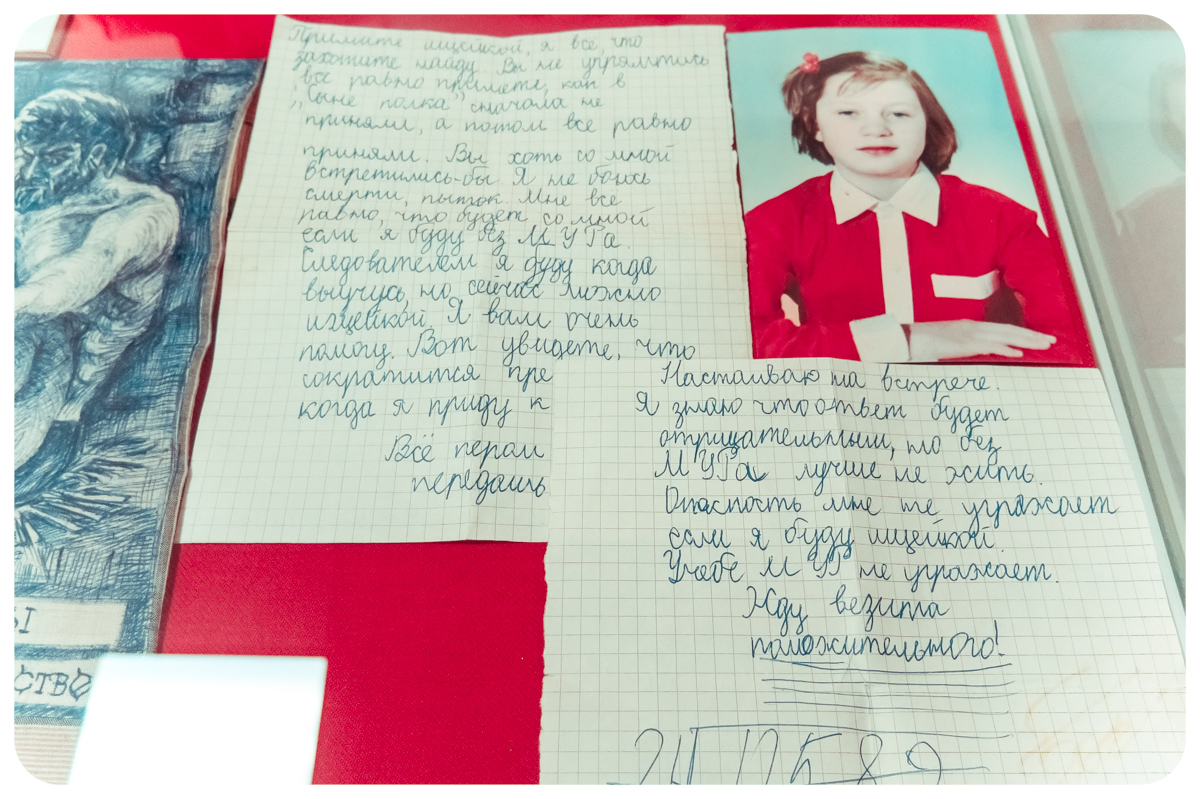 Примите ищейкой, я все, что
захотите найду. Вы не упрямтись
все равно примете, как в
"Сыне полка" сначала не
приняли, а потом все равно
приняли. Вы хоть со мной
встретились-бы. Я не боюсь
смерти, пыток. Мне все
равно, что будет со мной
если я буду без МУРа.
Следователем я буду когда
выучусь, но сейчас можно
ищейкой. Я вам очень
помогу. Вот увидете, что
сократится пре
когда я приду к
Всё перои
передашь
Настаиваю на встрече.
Я знаю что ответ будет
отрицательный, но без
МУРа лучше не жить.
Опасность мне не угражает
если я буду ищейкой.
Учебе МУР не угражает.
Жду везита
положительного!
Ы
СТВО